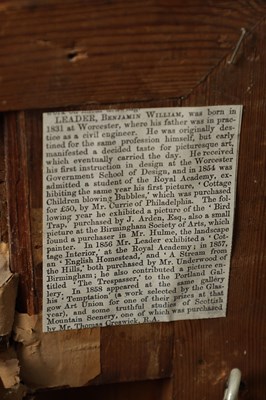 LEADER, BENJAMIN WILLIAM, was born in
1831 at Worcester, where his father was in prac-
tice as a civil engineer. He was originally des-
tined for the same profession himself, but early
manifested a decided taste for picturesque art,
which eventually carried the day. He received
his first instruction in design at the Worcester
Government School of Design, and in 1854 was
admitted a student of the Royal Academy, ex-
hibiting the same year his first picture, 'Cottage
Children blowing Bubbles,' which was purchased
for £50, by Mr. Currie of Philadelphia. The fol-
lowing year he exhibited a picture of the 'Bird
Trap,' purchased by J. Arden, Esq., also a small
picture at the Birmingham Society of Arts, which
found a purchaser in Mr. Hulme, the landscape
painter. In 1856 Mr. Leader exhibited a 'Cot-
tage Interior,' at the Royal Academy; in 1857,
an 'English Homestead,' and 'A Stream from
the Hills,' both purchased by Mr. Underwood of
Birmingham; he also contributed a picture en-
titled 'The Trespasser,' to the Portland Gal-
lery. In 1858 appeared at the same gallery,
his 'Temptation' (a work selected by the Glas-
gow Art Union for one of their prizes at that
year), and some truthful studies of Scottish
Mountain Scenery, one of which was purchased
by Mr. Thomas Creswick, R.A.